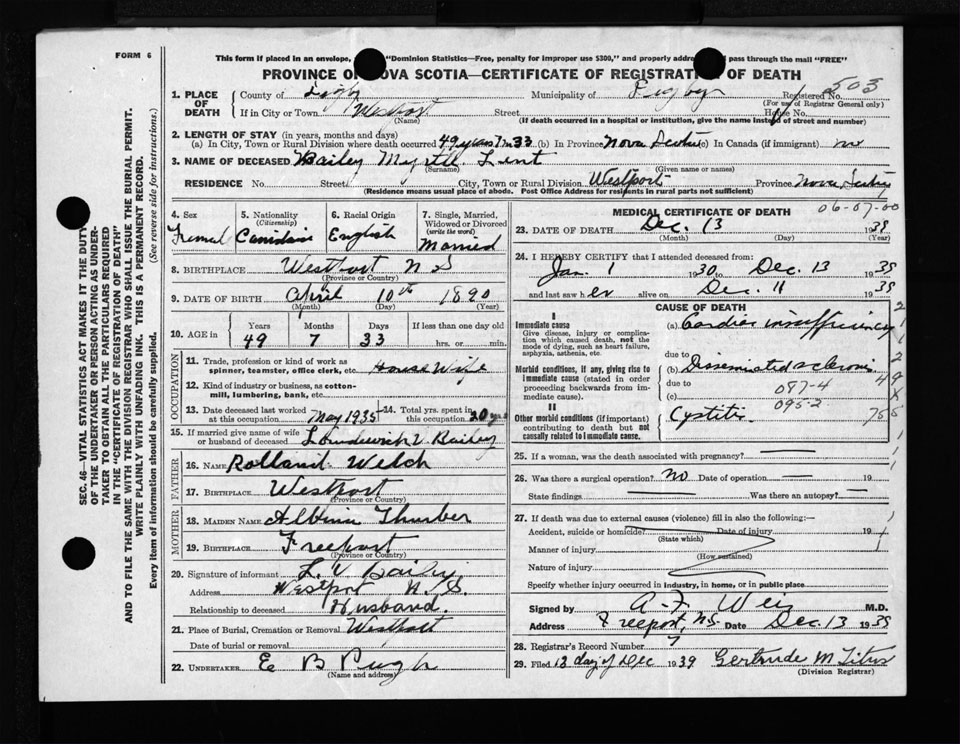 FORM 6
This form if placed in an envelope, "Dominion Statistics—Free, penalty for improper use $300," and properly addre pass through the mail "FREE"
PROVINCE OF NOVA SCOTIA—CERTIFICATE OF REGISTRATION OF DEATH
1. PLACE OF DEATH County of Digby Municipality of Digby Registered No. 503
(For use of Registrar General only)
If in City or Town Westport Street House No.
(Name) (If death occurred in a hospital or institution, give the name instead of street and number)
2. LENGTH OF STAY (in years, months and days)
(a) In City, Town or Rural Division where death occurred 49 years 7 m 33 (b) In Province Nova Scotia (c) In Canada (if immigrant) no
3. NAME OF DECEASED Bailey Myrtle Lent
(Surname) (Given name or names)
RESIDENCE No. Street City, Town or Rural Division Westport Province Nova Scotia
(Residence means usual place of abode. Post Office Address for residents in rural parts not sufficient)
4. Sex 5. Nationality 6. Racial Origin 7. Single, Married,
(Citizenship) Widowed or Divorced
(write the word)
Femal English Married
8. BIRTHPLACE Westport N S
(Province or Country)
9. DATE OF BIRTH April 10th 1890
(Month) (Day) (Year)
10. AGE in Years Months Days If less than one day old
49 7 33 hrs. or min.
OCCUPATION
11. Trade, profession or kind of work as
spinner, teamster, office clerk, etc. House Wife
12. Kind of industry or business, as cotton-
mill, lumbering, bank, etc.
13. Date deceased last worked at this occupation May 1935 14. Total yrs. spent in this occupation 20 yrs
15. If married give name of wife
or husband of deceased V Bailey
FATHER
16. NAME Rolland Welch
17. BIRTHPLACE Westport
(Province or Country)
MOTHER
18. MAIDEN NAME Thurber
19. BIRTHPLACE Freeport
(Province or Country)
20. Signature of informant L. V Bailey
Address Westport N. S.
Relationship to deceased Husband.
21. Place of Burial, Cremation or Removal Westport
Date of burial or removal
22. UNDERTAKER E B Pugh
(Name and address)
MEDICAL CERTIFICATE OF DEATH 06-07-00
23. DATE OF DEATH Dec. 13 1939
(Month) (Day) (Year)
24. I HEREBY CERTIFY that I attended deceased from:
Jan. 1 1930 to Dec. 13 1939
and last saw her alive on Dec. 11 1939
CAUSE OF DEATH
I
Immediate cause (a) Cardiac insufficiency
Give disease, injury or complica-
tion which caused death, not the
mode of dying, such as heart failure,
asphyxia, asthenia, etc.
due to
Morbid conditions, if any, giving rise to
immediate cause (stated in order
proceeding backwards from im-
mediate cause).
(b) Disseminated sclerosis
due to 087-4
(c) 095-2
II
Other morbid conditions (if important)
contributing to death but not
causally related to immediate cause.
Cystitis
25. If a woman, was the death associated with pregnancy?
26. Was there a surgical operation? no Date of operation 19
State findings Was there an autopsy?
27. If death was due to external causes (violence) fill in also the following:—
Accident, suicide or homicide? Date of injury 19
(State which)
Manner of injury
(How sustained)
Nature of injury
Specify whether injury occurred in industry, in home, or in public place
Signed by A. F. Weir M.D.
Address Freeport, N.S. Date Dec. 13 1939
28. Registrar's Record Number 7
29. Filed 13 day of Dec 1939 Gertrude M Titus
(Division Registrar)
SEC. 46—VITAL STATISTICS ACT MAKES IT THE DUTY
OF THE UNDERTAKER OR PERSON ACTING AS UNDER-
TAKER TO OBTAIN ALL THE PARTICULARS REQUIRED
IN THE "CERTIFICATE OF REGISTRATION OF DEATH"
AND TO FILE THE SAME WITH THE DIVISION REGISTRAR WHO SHALL ISSUE THE BURIAL PERMIT.
WRITE PLAINLY WITH UNFADING INK. THIS IS A PERMANENT RECORD.
Every item of information should be carefully supplied. (See reverse side for instructions.)